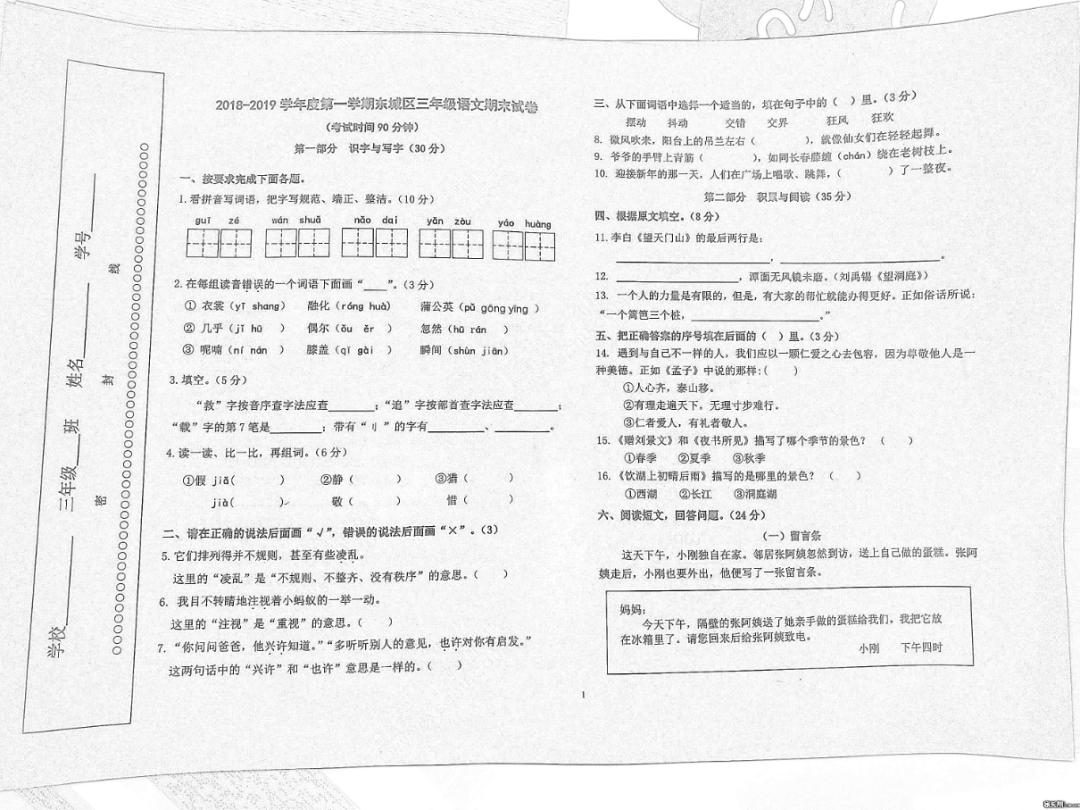 学校________ 三年级___班 姓名________ 学号________
密 封 线
2018-2019 学年度第一学期东城区三年级语文期末试卷
(考试时间90分钟)
第一部分 识字与写字(30分)
一、按要求完成下面各题。
1.看拼音写词语,把字写规范、端正、整洁。(10分)
guī zé wán shuǎ nǎo dai yǎn zòu yáo huàng
2.在每组读音错误的一个词语下面画“____”。(3分)
① 衣裳(yī shang) 融化(róng huà) 蒲公英(pú gōng yīng )
② 几乎(jī hū ) 偶尔(ǒu ěr ) 忽然(hū rán )
③ 呢喃(ní nán ) 膝盖(qī gài ) 瞬间(shùn jiān)
3.填空。(5分)
“救”字按音序查字法应查________;“追”字按部首查字法应查________;
“载”字的第7笔是_________;带有“刂”的字有_________、_________。
4.读一读、比一比,再组词。(6分)
①假 jiǎ( ) ②静( ) ③猎( )
jià( ) 敬( ) 惜( )
二、请在正确的说法后面画“√”,错误的说法后面画“×”。(3)
5.它们排列得并不规则,甚至有些凌乱。
这里的“凌乱”是“不规则、不整齐、没有秩序”的意思。( )
6. 我目不转睛地注视着小蚂蚁的一举一动。
这里的“注视”是“重视”的意思。( )
7.“你问问爸爸,他兴许知道。”“多听听别人的意见,也许对你有启发。”
这两句话中的“兴许”和“也许”意思是一样的。( )
三、从下面词语中选择一个适当的,填在句子中的( )里。(3分)
摆动 抖动 交错 交界 狂风 狂欢
8. 微风吹来,阳台上的吊兰左右( ),就像仙女们在轻轻起舞。
9. 爷爷的手臂上青筋( ),如同长春藤缠(chán)绕在老树枝上。
10. 迎接新年的那一天,人们在广场上唱歌、跳舞,( )了一整夜。
第二部分 积累与阅读(35分)
四、根据原文填空。(8分)
11.李白《望天门山》的最后两行是:
________________________,________________________。
12. ____________________,潭面无风镜未磨。(刘禹锡《望洞庭》)
13. 一个人的力量是有限的,但是,有大家的帮忙就能办得更好。正如俗话所说:
“一个篱笆三个桩,____________________。”
五、把正确答案的序号填在后面的( )里。(3分)
14. 遇到与自己不一样的人,我们应以一颗仁爱之心去包容,因为尊敬他人是一
种美德。正如《孟子》中说的那样:( )
①人心齐,泰山移。
②有理走遍天下,无理寸步难行。
③仁者爱人,有礼者敬人。
15.《赠刘景文》和《夜书所见》描写了哪个季节的景色? ( )
①春季 ②夏季 ③秋季
16.《饮湖上初晴后雨》描写的是哪里的景色? ( )
①西湖 ②长江 ③洞庭湖
六、阅读短文,回答问题。(24分)
(一)留言条
这天下午,小刚独自在家。邻居张阿姨忽然到访,送上自己做的蛋糕。张阿
姨走后,小刚也要外出,他便写了一张留言条。
妈妈:
今天下午,隔壁的张阿姨送了她亲手做的蛋糕给我们,我把它放
在冰箱里了。请您回来后给张阿姨致电。
小刚 下午四时
1